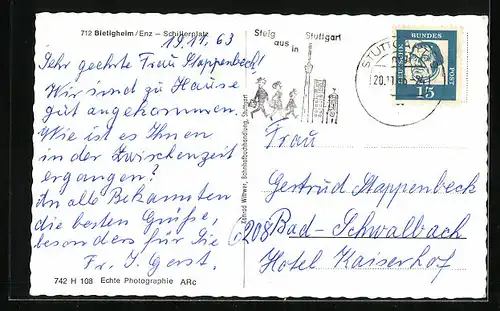 712 Bietigheim/Enz — Schillerplatz
19.11.63
Sehr geehrte Frau Stappenbeck!
Wir sind zu Hause
gut angekommen.
Wie ist es Ihnen
in der Zwischenzeit
ergangen?
An alle Bekannten
die besten Grüße,
besonders für Sie
Fr. J. Gerst.
742 H 108 Echte Photographie ARc
Konrad Wittwer, Bahnhofbuchhandlung, Stuttgart
Steig
aus
in
Stuttgart
STUTTGART
20.11.63
DEUTSCHE BUNDES POST
15
Frau
Gertrud Stappenbeck
6208 Bad-Schwalbach
Hotel Kaiserhof